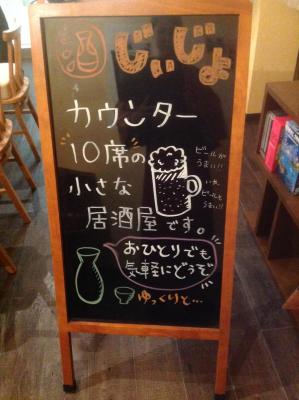 じぃじょ
カウンター
"10席の
小さな
居酒屋です。
ビールが
うまい!!
ビールも
うまい!!
おひとりでも
気軽にどうぞ
ゆっくりと…